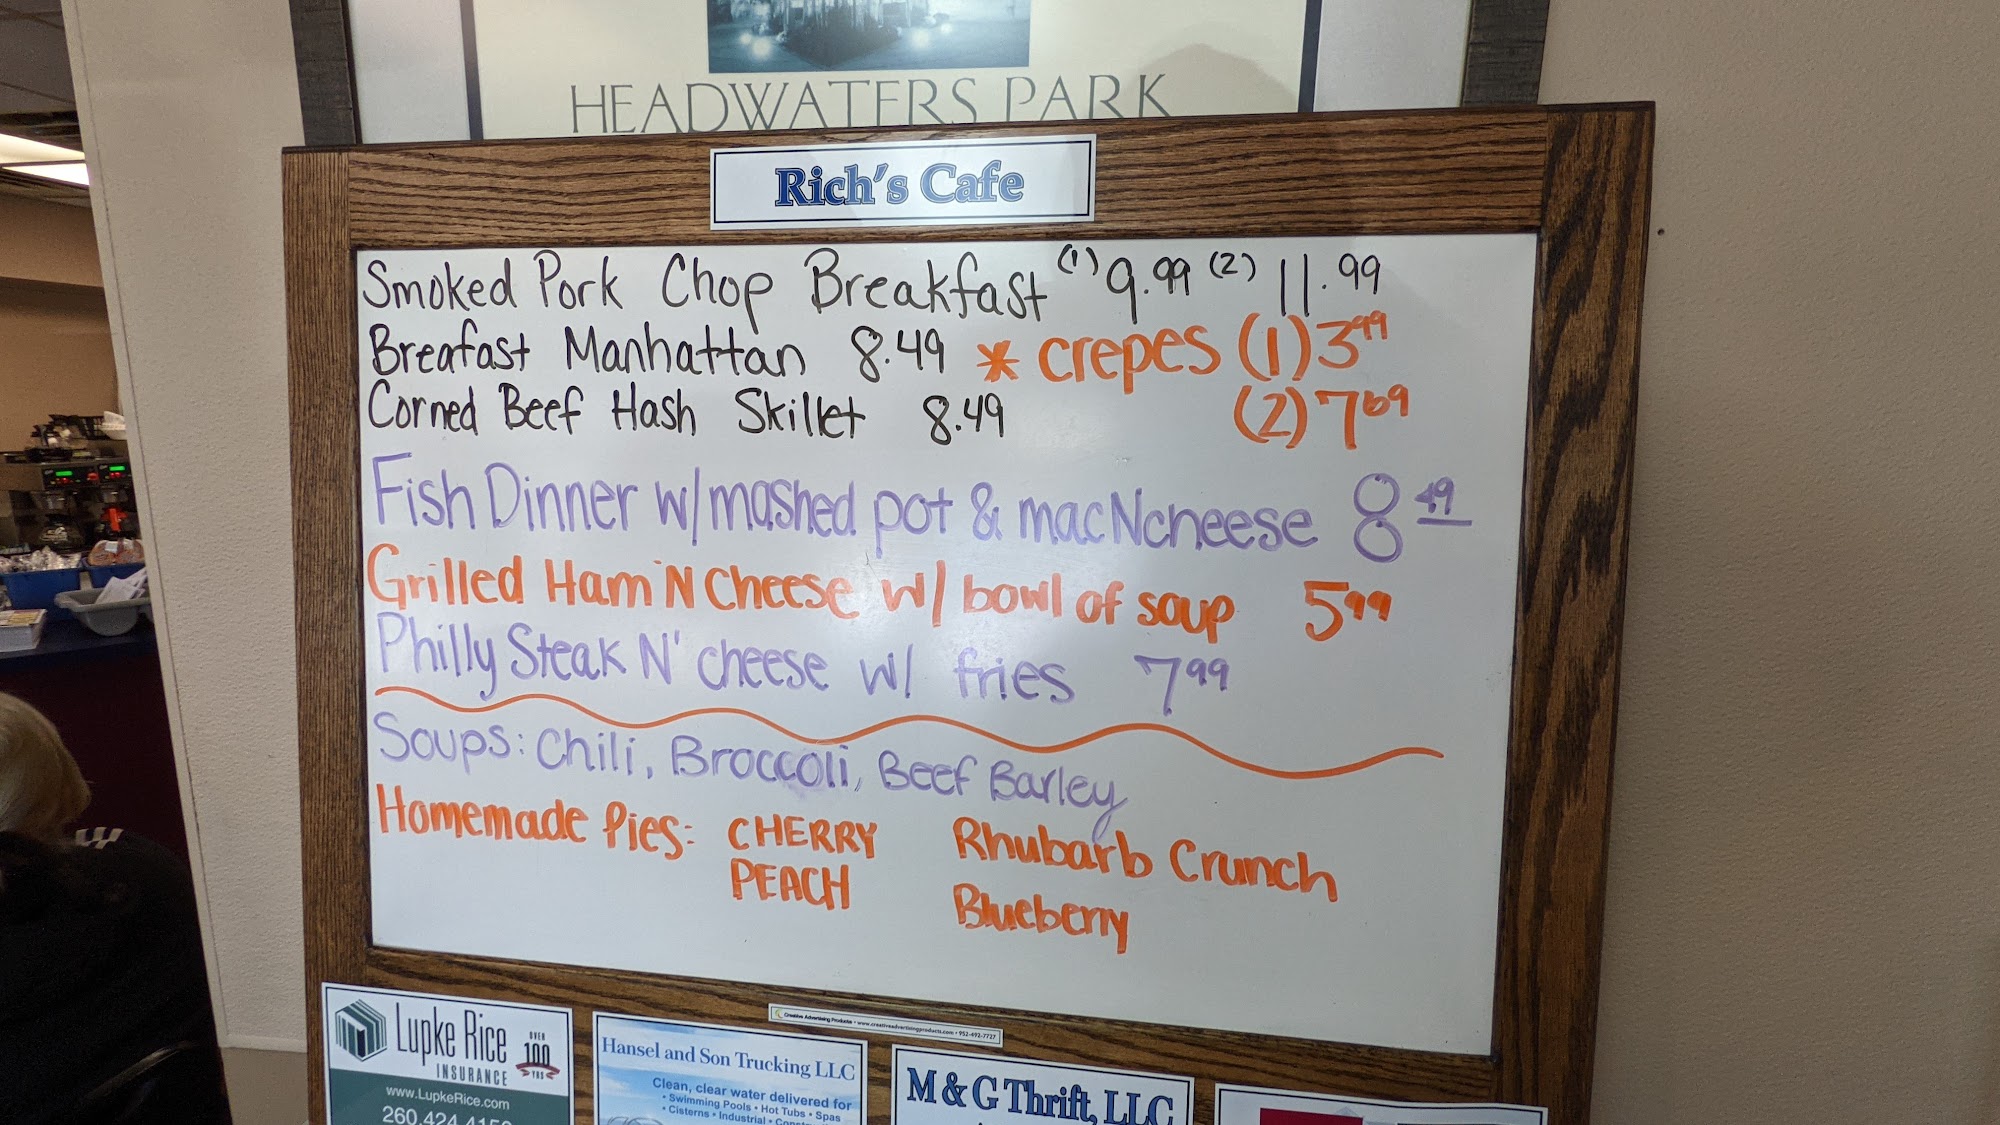 HEADWATERS PARK
Rich's Cafe
Smoked Pork Chop Breakfast (1) 9.99 (2) 11.99
Breafast Manhattan 8.49 * crepes (1) 3 99
Corned Beef Hash Skillet 8.49 (2) 7 69
Fish Dinner w/mashed pot & macNcheese 8 49
Grilled Ham'N Cheese w/ bowl of soup 5 99
Philly Steak N' cheese w/ fries 7 99
Soups: Chili, Broccoli, Beef Barley
Homemade Pies: CHERRY Rhubarb Crunch
PEACH Blueberry
Creative Advertising Products • www.creativeadvertisingproducts.com • 952-492-7727
Lupke Rice
INSURANCE
OVER
100
YRS
www.LupkeRice.com
260.424.
Hansel and Son Trucking LLC
Clean, clear water delivered for
• Swimming Pools • Hot Tubs • Spas
• Cisterns • Industrial •
M & G Thrift, LLC